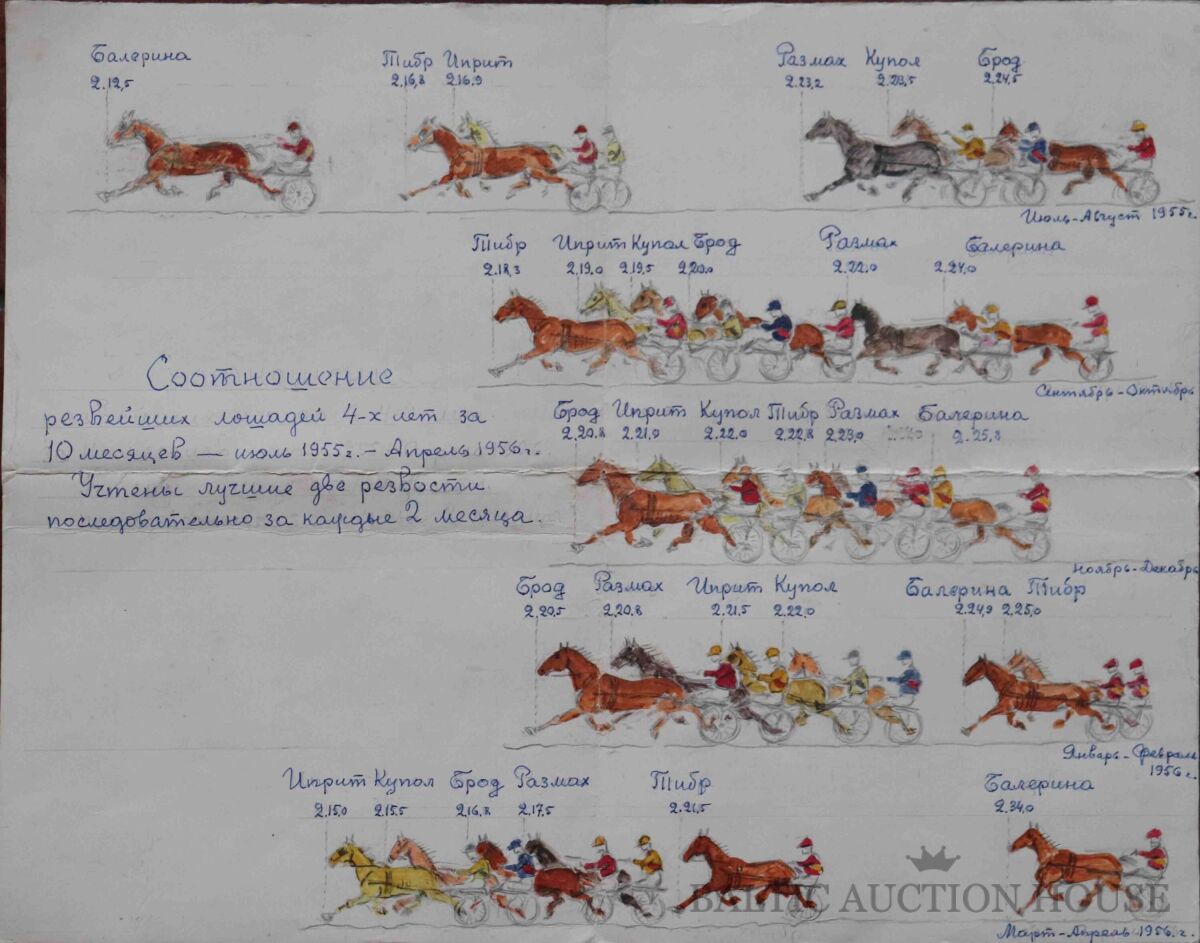 Балерина Тибр Иприт Размах Купол Брод
2.12,5 2.16,8 2.16.9 2.23,2 2.23,5 2.24,5
Июль-Август 1955г.
Тибр Иприт Купол Брод Размах Балерина
2.18,3 2.19.0 2.19,5 2.20.0 2.22.0 2.24.0
Сентябрь-Октябрь
Соотношение
резвейших лошадей 4-х лет за
10 месяцев — июль 1955г. – Апрель 1956г.
Учтены лучшие две резвости
последовательно за каждые 2 месяца.
Брод Иприт Купол Тибр Размах Балерина
2.20.8 2.21.0 2.22.0 2.22,8 2.23,0 2.25,8
Ноябрь-Декабрь
Брод Размах Иприт Купол Балерина Тибр
2.20,5 2.20.8 2.21,5 2.22,0 2.24,9 2.25,0
Январь-Февраль
1956г.
Иприт Купол Брод Размах Тибр Балерина
2.15,0 2.15.5 2.16,8 2.17,5 2.21,5 2.34,0
BALTIC AUCTION HOUSE
Март-Апрель 1956.г.